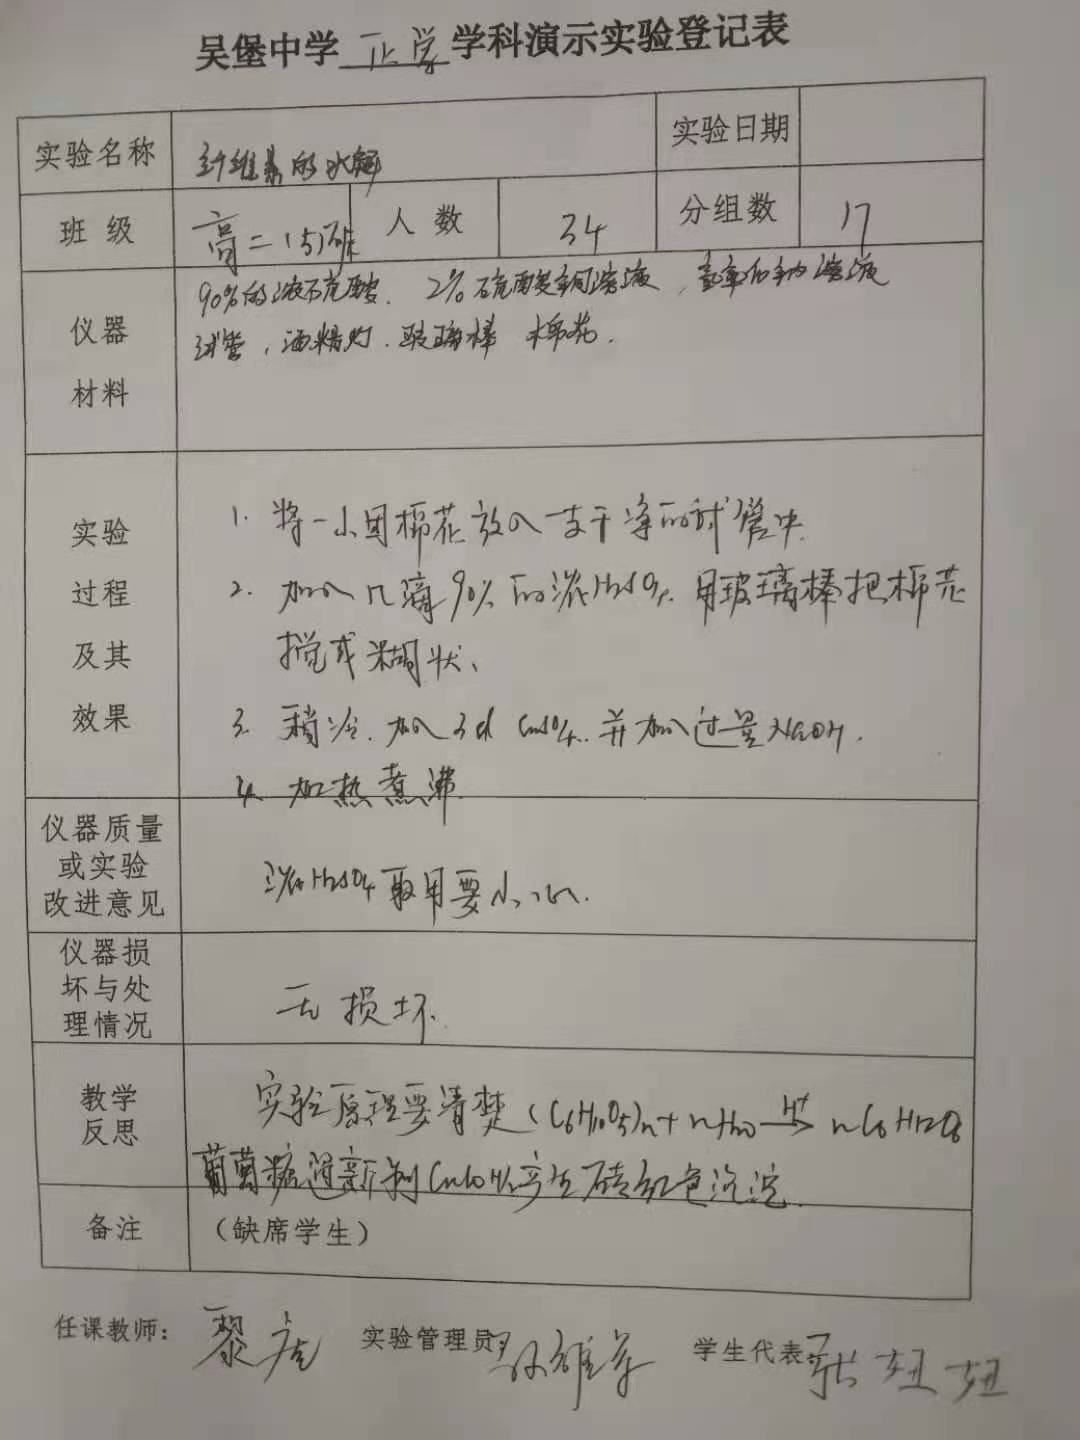 吴堡中学 化学 学科演示实验登记表
实验名称 纤维素的水解 实验日期
班 级 高二(5)班 人 数 34 分组数 17
仪器 材料
90%的浓硫酸、2%硫酸铜溶液,氢氧化钠溶液
试管,酒精灯.玻璃棒 棉花.
实验 过程 及其 效果
1. 将一小团棉花放入一支干净的试管中.
2. 加入几滴90%的浓H₂SO₄.用玻璃棒把棉花
搅成糊状、
3. 稍冷.加入3d CuSO₄..并加入过量NaOH.
4. 加热煮沸.
仪器质量
或实验
改进意见
浓H₂SO₄取用要小心.
仪器损
坏与处
理情况
无损坏.
教学
反思
实验原理要清楚(C₆H₁₀O₅)n+nH₂O H⁺→ nC₆H₁₂O₆
葡萄糖遇新制Cu(OH)₂产生砖红色沉淀.
备注 (缺席学生)
任课教师: 黎 实验管理员: 学生代表: 张妞妞